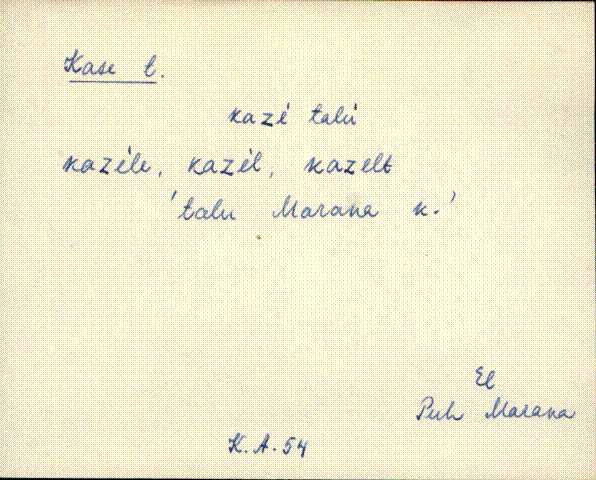 Kase t.
kazé talú
kazéle, kazél, kazelt
'talu Marana k.'
El
Puh Marana
K. A. 54